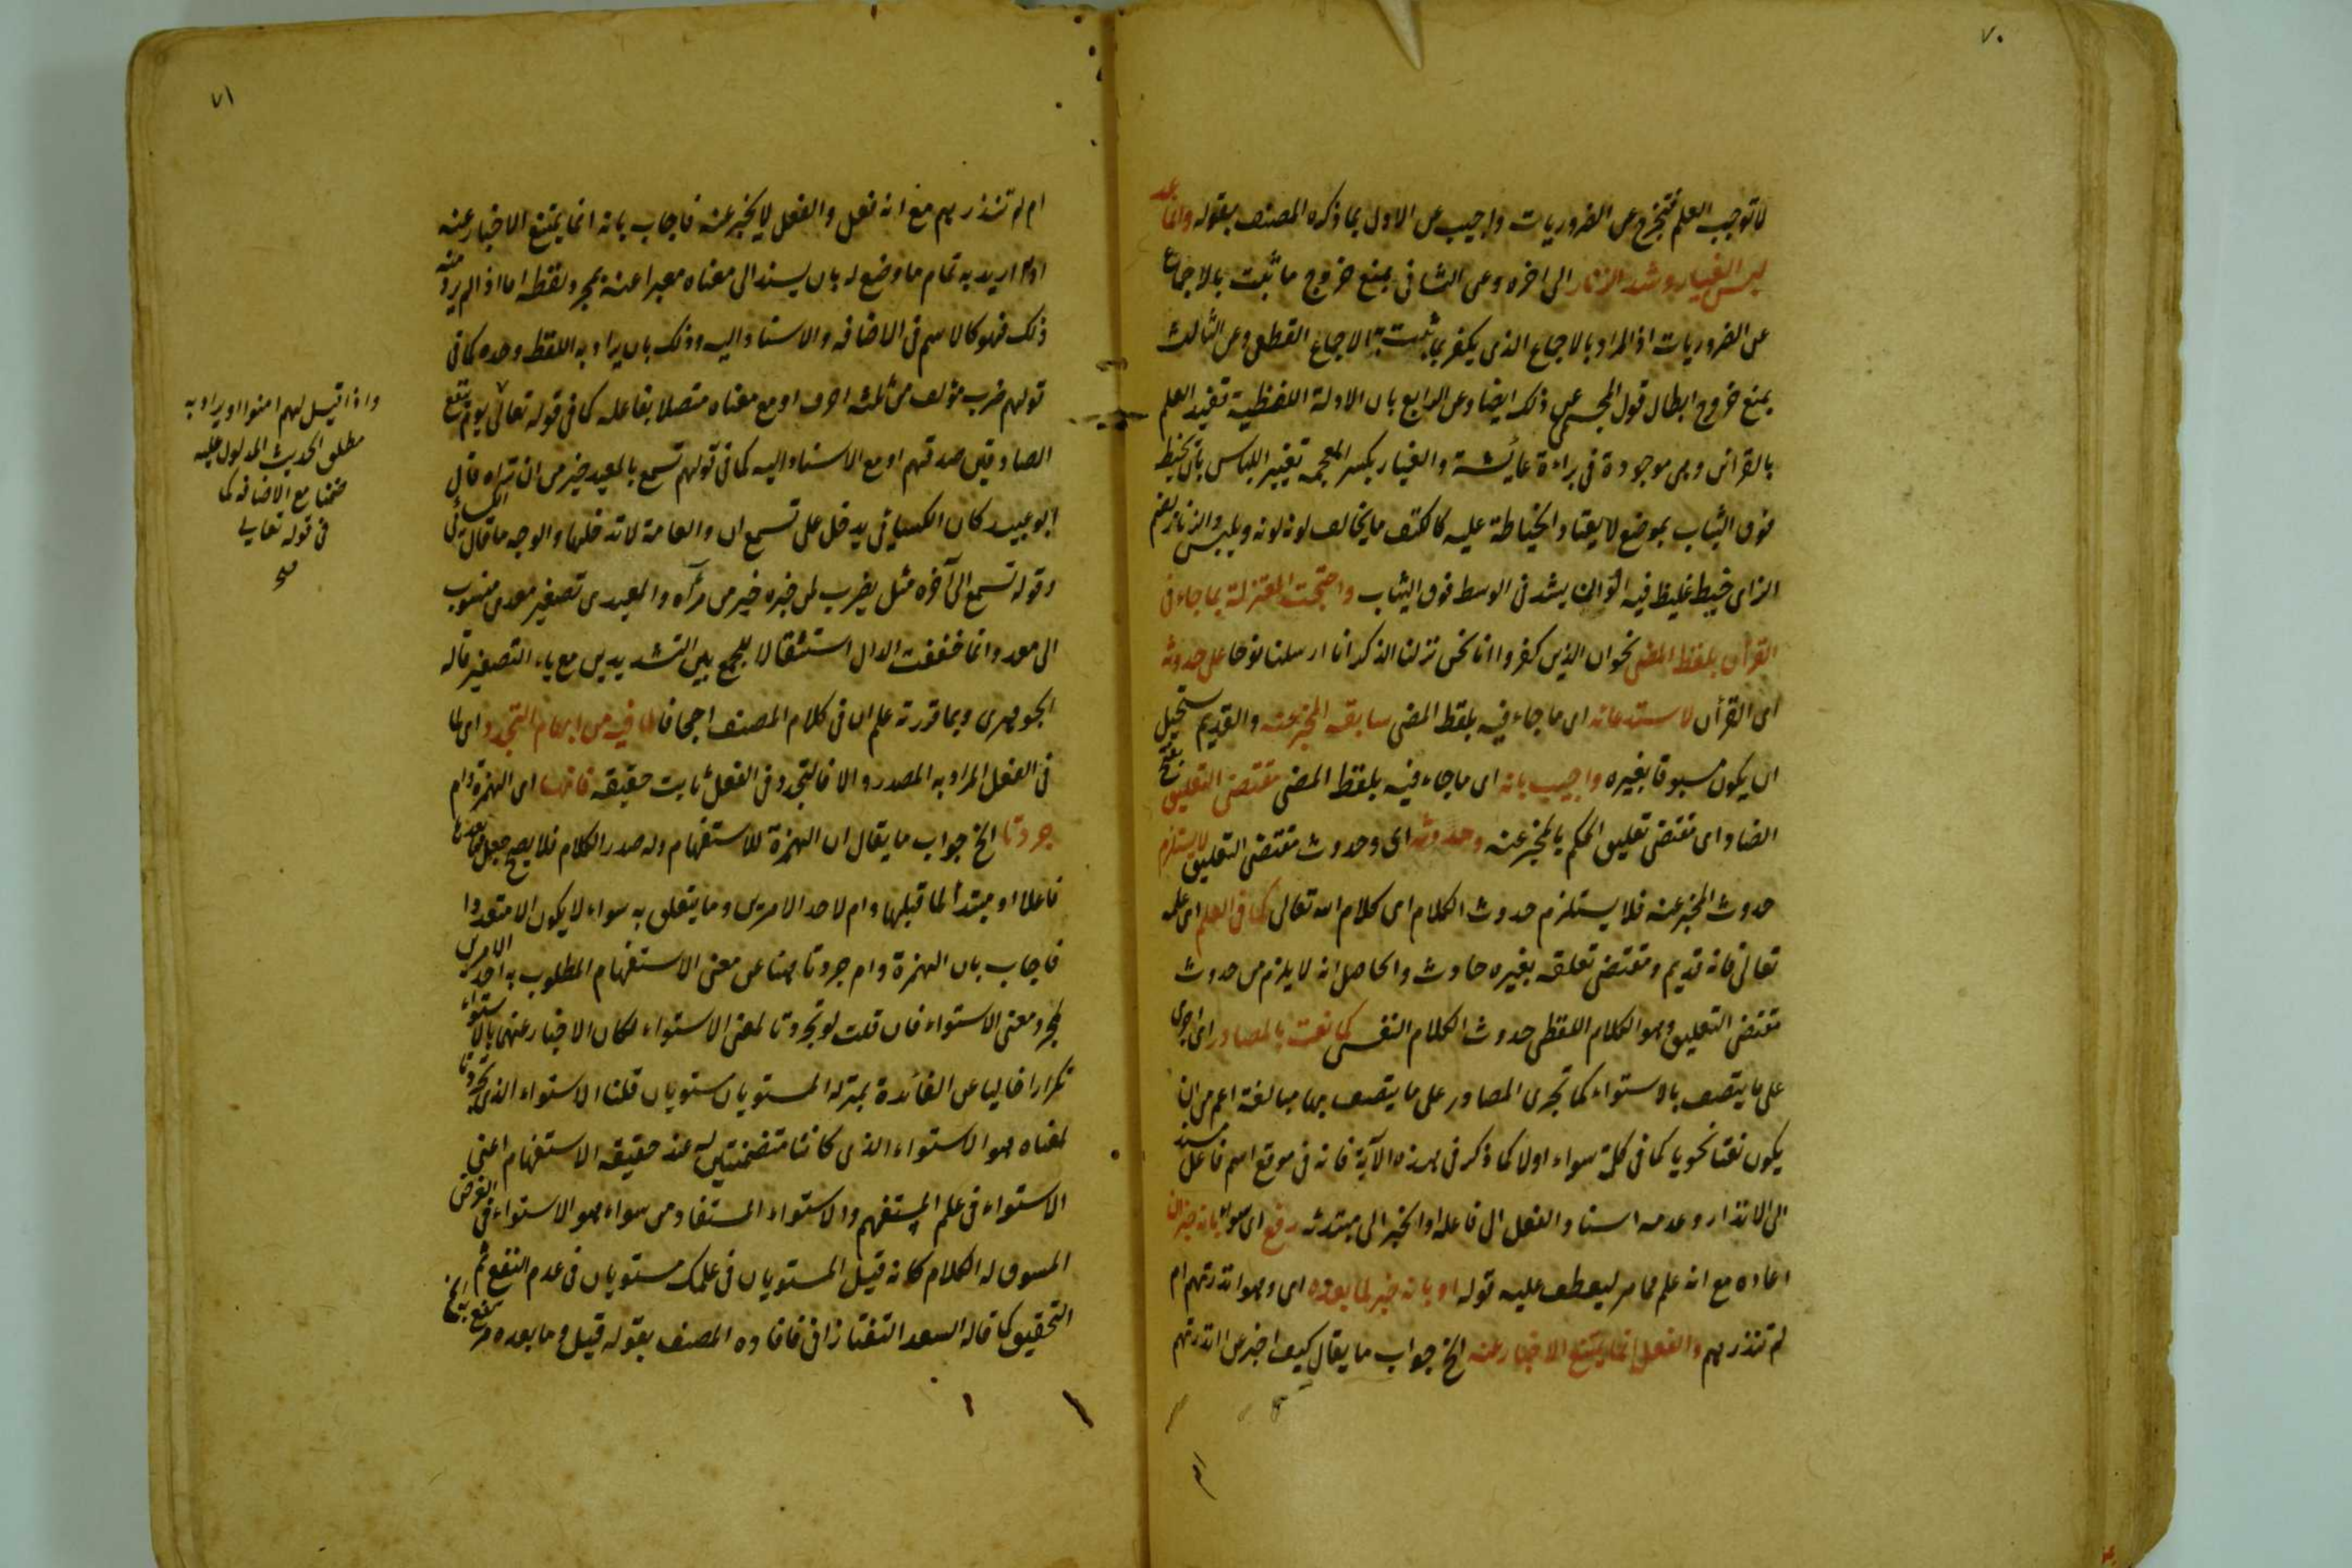 ٧٠
لا توجب العلم فتخرج عن الضروريات واجيب عن الاول بما ذكره المصنف بقوله وانما عد
لبس الغيار وشد الزنار الى اخره وعن الثانى بمنع خروج ما ثبت بالاجماع
عن الضروريات اذ المراد بالاجماع الذى يكفر بما ثبت به الاجماع القطعى وعن الثالث
بمنع خروج ابطال قول المجسمى عن ذلك ايضا وعن الرابع بان الادلة اللفظية تفيد العلم
بالقرائن وهى موجودة فى براءة عائشة والغيار بكسر المعجمة تغيير اللباس بان يخيط
فوق الثياب بموضع لا يعتاد الخياطة عليه كالكتف ما يخالف لونه لونه ويلبس والزنار بضم
الزاى خيط غليظ فيه الوان يشد فى الوسط فوق الثياب واحتجت المعتزلة بما جاء فى
القرآن بلفظ المضى نحو ان الذين كفروا انا نحن نزلنا الذكر انا ارسلنا نوحا على حدوثه
اى القرآن لاستدعائه اى ما جاء فيه بلفظ المضى سابقة المخبر عنه والقديم يستحيل
ان يكون مسبوقا بغيره واجيب بانه اى ما جاء فيه بلفظ المضى مقتضى التعليق بفتح
الضاد اى مقتضى تعليق الحكم بالمخبر عنه وحدوثه اى وحدوث مقتضى التعليق لا يستلزم
حدوث المخبر عنه فلا يستلزم حدوث الكلام اى كلام الله تعالى كما فى العلم اى علمه
تعالى فانه قديم ومقتضى تعلقه بغيره حادث والحاصل انه لا يلزم من حدوث
مقتضى التعليق وهو الكلام اللفظى حدوث الكلام النفسى كما نعت بالمصادر اى اجرى
على ما يتصف بالاستواء كما تجرى المصادر على ما يتصف بها مبالغة اعم من ان
يكون نعتا نحويا كما فى كلمة سواء اولا كما ذكر فى هذه الآية فانه فى موقع اسم فاعل مسند
الى الانذار وعدمه اسناد الفعل الى فاعله او الخبر الى مبتدئه رفع اى سواء بانه خبر ان
اعاده مع انه علم مما مر ليعطف عليه قوله او بانه خبر لما بعده اى وهو انذرتهم ام
لم تنذرهم والفعل انما يمتنع الاخبار عنه الخ جواب ما يقال كيف اخبر عن انذرتهم
٧١
ام لم تنذرهم مع انه فعل والفعل لا يخبر عنه فاجاب بانه انما يمتنع الاخبار عنه
اذا اريد به تمام ما وضع له بان يسند الى معناه معبرا عنه بمجرد لفظه اما اذا لم يرد منه
ذلك فهو كالاسم فى الاضافه والاسناد اليه وذلك بان يراد به اللفظ وحده كما فى
قولهم ضرب مؤلف من ثلثه احرف او مع معناه متصلا بفاعله كما فى قوله تعالى يوم ينفع
الصادقين صدقهم او مع الاسناد اليه كما فى قولهم تسمع بالمعيدى خير من ان تراه قال
ابو عبيد كان الكسائى يدخل على تسمع ان والعامة لا تدخلها والوجه ما قال الكسائى
وقوله تسمع الى آخره مثل يضرب لمن خبره خير من مرآه والمعيدى تصغير معدى منسوب
الى معد وانما خففت الدال استثقالا للجمع بين التشديدين مع ياء التصغير قاله
الجوهرى وبما قررته علم ان فى كلام المصنف اجحافا لما فيه من ابهام التجدد اى لما
فى الفعل المراد به المصدر والا فالتجدد فى الفعل ثابت حقيقه فانهما اى الهمزة وام
جردتا الخ جواب ما يقال ان الهمزة للاستفهام وله صدر الكلام فلا يصح جعل ما بعدها
فاعلا او مبتدأ لما قبلها وام لاحد الامرين وما يتعلق به سواء لا يكون الا متعددا
فاجاب بان الهمزة وام جردتا هنا عن معنى الاستفهام المطلوب به احد الامرين
لمجرد معنى الاستواء فان قلت لو تجردتا لمعنى الاستواء لكان الاخبار عنهما بالاستواء
تكرارا خاليا عن الفائدة بمنزلة المستويان مستويان قلنا الاستواء الذى تجردتا
لمعناه هو الاستواء الذى كانتا متضمنتين له عند حقيقة الاستفهام اعنى
الاستواء فى علم المستفهم والاستواء المستفاد من سواء هو الاستواء فى الغرض
المسوق له الكلام كانه قيل المستويان فى علمك مستويان فى عدم النفع ثم
التحقيق كما قاله السعد التفتازانى فافاده المصنف بقوله قيل وما بعده
واذا قيل لهم امنوا او يراد به
مطلق الحدث المدلول عليه
ضمنا مع الاضافه كما
فى قوله تعالى
صح